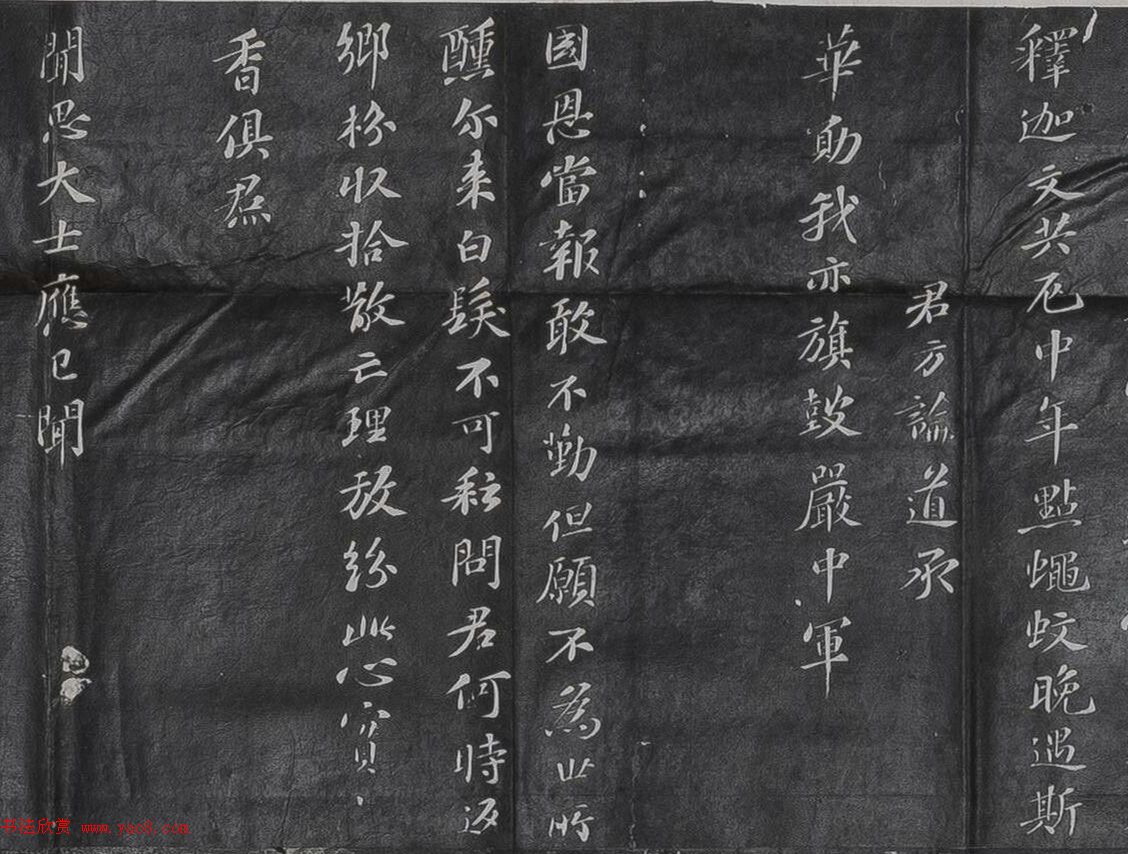 釋迦文共厄中年點蠅蚊晚遇斯
君方論道承
華勛我亦旗鼓嚴中軍
國恩當報敢不勤但願不為世所
醺尔来白髮不可耘問君何時返
鄉枌収拾散亡理放紛此心實
香俱焄
聞思大士應已聞
书法欣赏 www.yac8.com